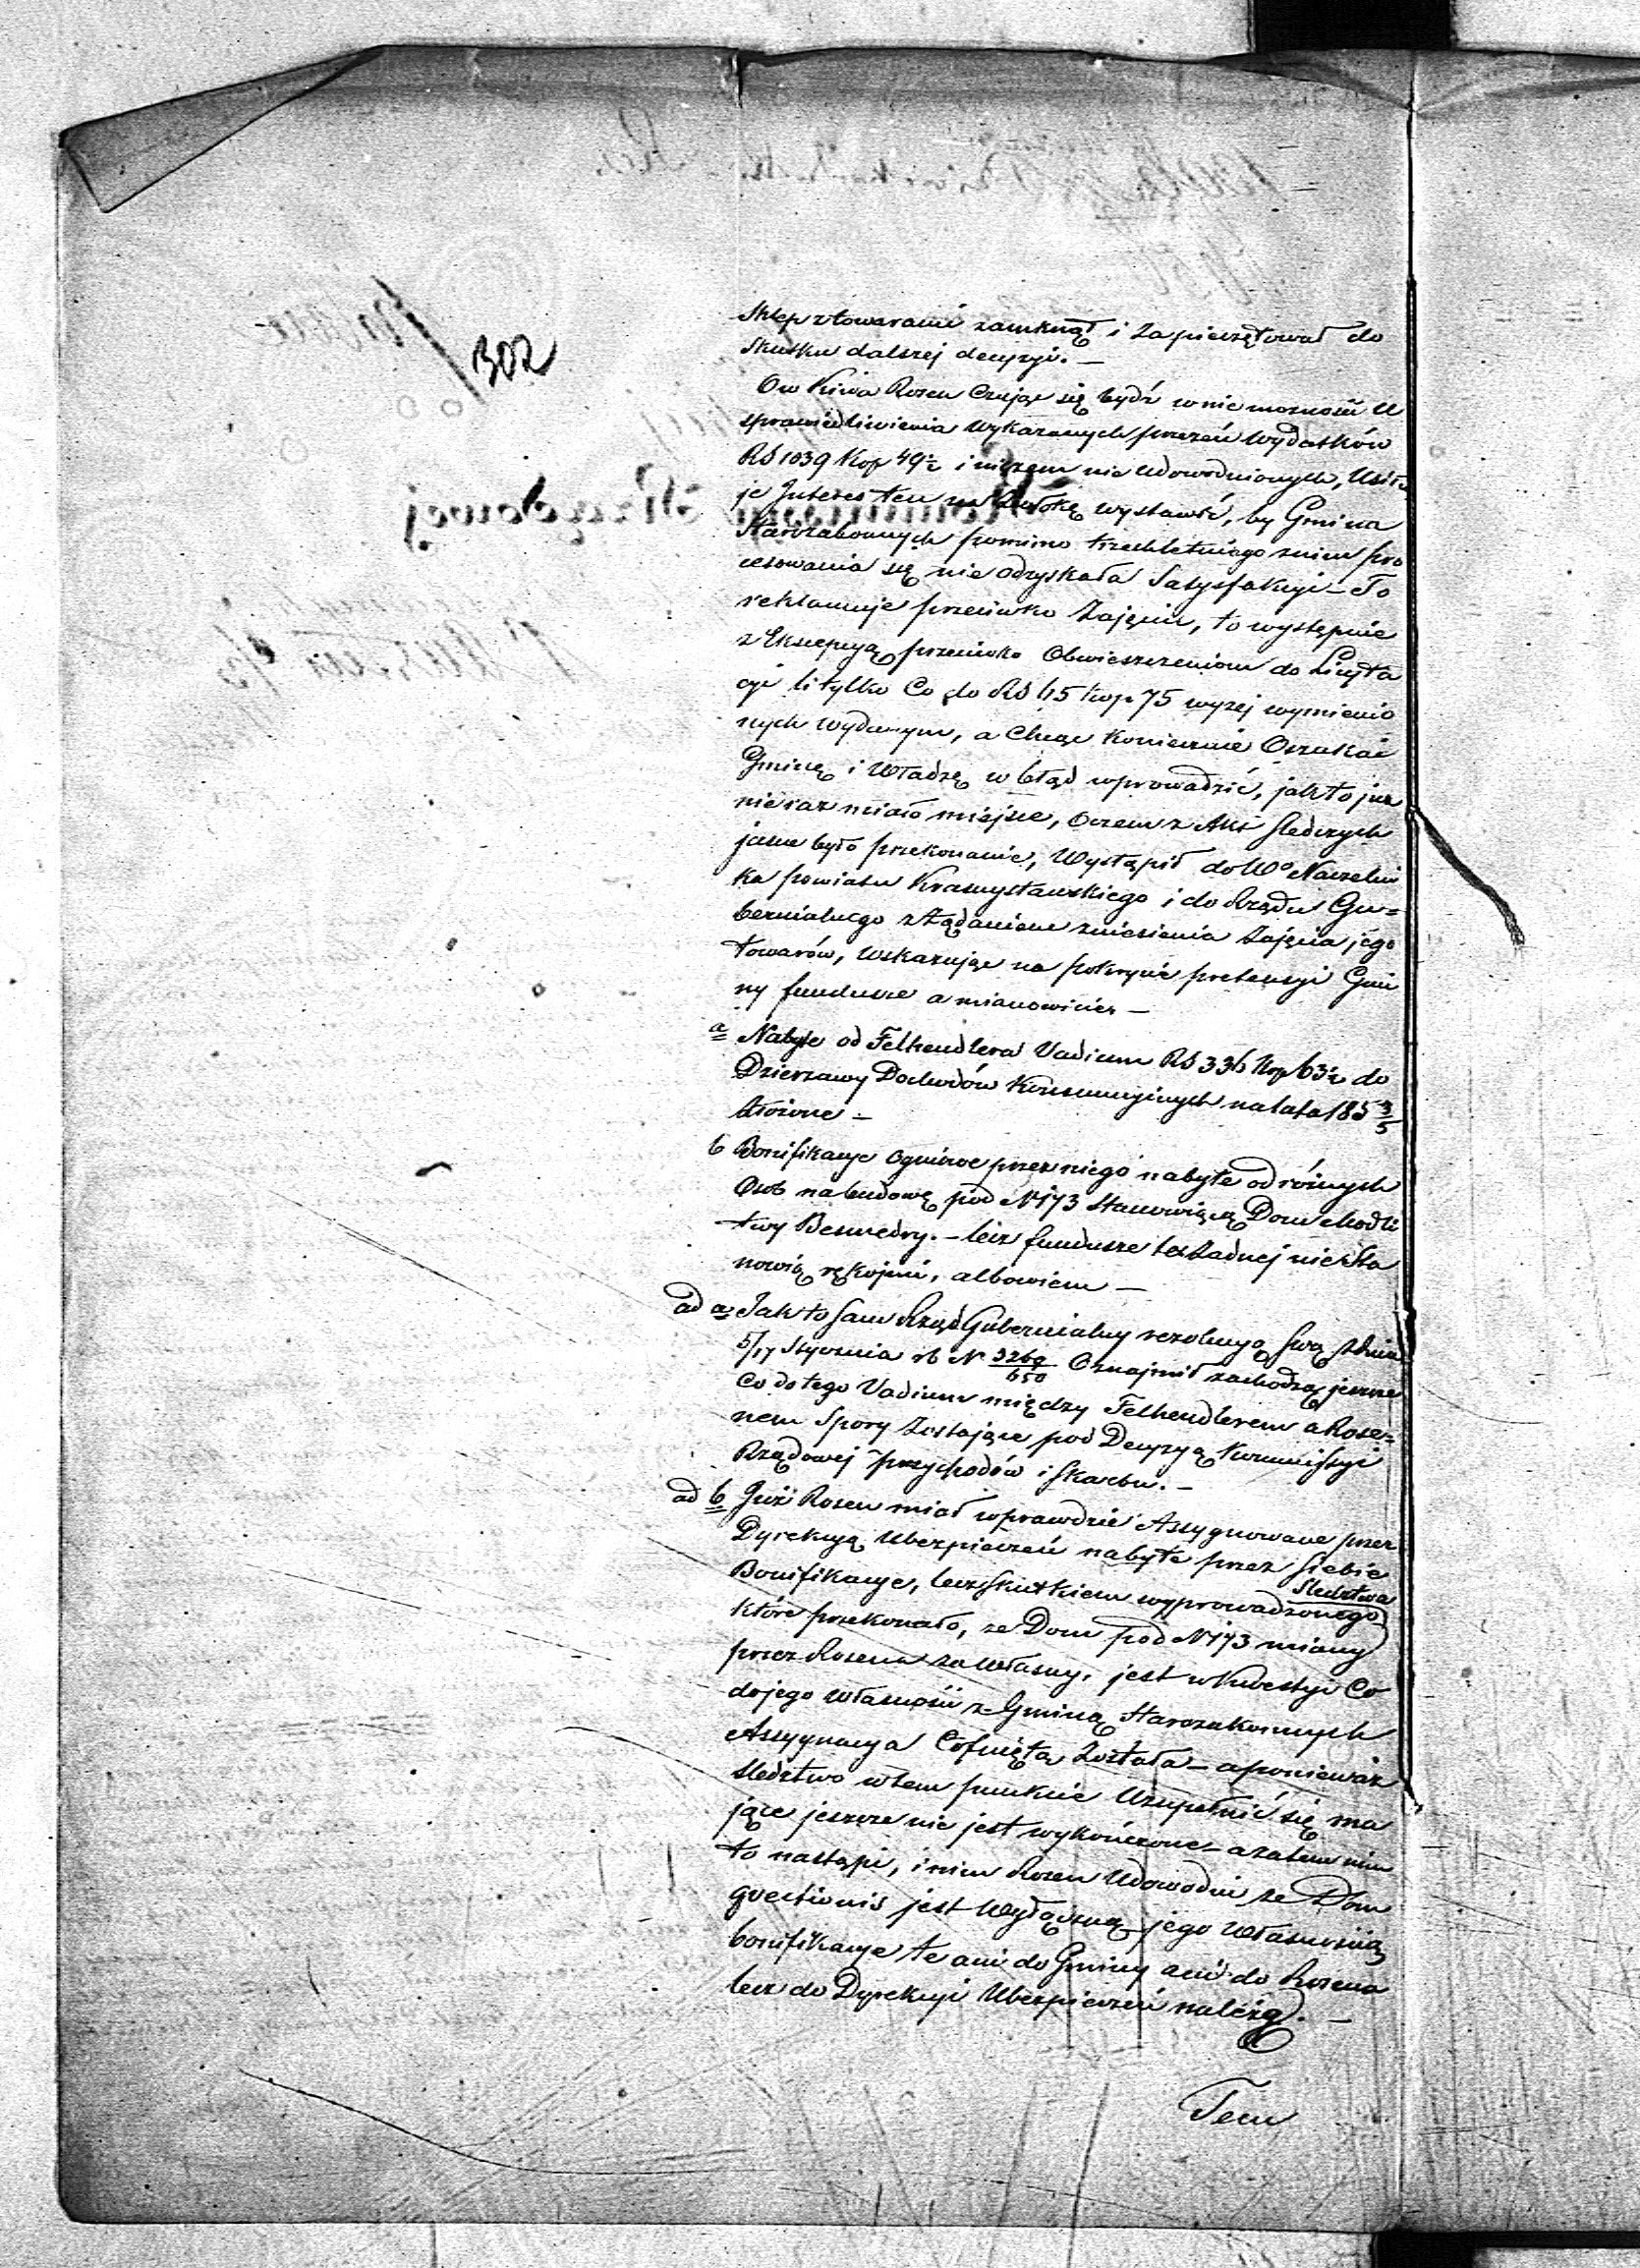 302
Sklep z towarami zamknął i zapieczętował do
skutku dalszej decyzyi. —
Ow Kiwa Rosen czując się bydź w nie możności u
sprawiedliwienia wykazanych przezeń wydatków
RS 1039 Kop 49½ i niczem nie udowodnionych, Usiłu
je Interes ten na Zwłokę wystawić, by Gmina
Starozakonnych pomimo trzechletniego z niem pro
cesowania się nie odzyskała Satysfakcyi — To
reklamuje przeciwko Zajęciu, to występuie
z Ekscepcyą przeciwko Obwieszczeniom do Licyta
cyi li tylko Co do RS 45 kop 75 wyżej wymienio
nych wydanym, a Chcąc Koniecznie Oszukać
Gminę i Władzę w błąd wprowadzić, jak to już
nieraz miało miejsce, o czem z Akt śledczych
jasne było przekonanie, Wystąpił do Wo Naczelni
ka powiatu Krasnystawskiego i do Rządu Gu=
bernialnego z Żądaniem zniesienia Zajęcia jego
towarów, wskazując na pokrycie pretensyi Gmi
ny fundusze a mianowicie —
a Nabyte od Felhendlera Vadium RS 336 Kop 63½ do
Dzierzawy Dochodów Konsumcyinych na lata 185 3/5
złożone —
b Bonifikacye ogniowe przez niego nabyte od różnych
Osob na budowę pod N 173 stanowiącą Dom Modli
twy Besmedry. — lecz fundusze te żadnej nie sta
nowią rękojmi, albowiem —
ad a Jak to sam Rząd Gubernialny rezolucyą swą z dnia
5/17 Stycznia rb N 3269/650 Oznajmił zachodzą jeszcze
Co do tego Vadium między Felhendlerem a Rose=
nem Spory zostające pod Decyzyą Kommissyi
Rządowej Przychodów i Skarbu. —
ad b Juź Rosen miał wprawdzie Assygnowane przez
Dyrekcyą Ubezpieczeń nabyte przez siebie
Bonifikacye, lecz skutkiem wyprowadzonego Śledztwa
które przekonało, ze Dom pod N 173 miany
przez Rosena za własny, jest w Kwestyi Co
do jego własności z Gminą Starozakonnych
Assygnacya Cofniętą Została — a ponieważ
śledztwo w tem punkcie Uzupełnić się ma
jące jeszcze nie jest wykończone — a zatem nim
to nastąpi, i nim Rosen Udowodni ze Dom
questionis jest Wyłączną jego własnością
bonifikacye te ani do Gminy ani do Rosena
lecz do Dyrekcyi Ubezpieczeń należą. —
Tem